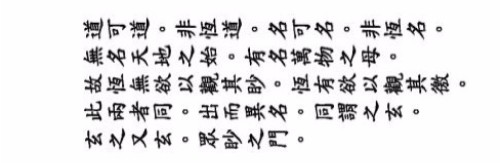 道可道。非恆道。名可名。非恆名。
無名天地之始。有名萬物之母。
故恆無欲以觀其眇。恆有欲以觀其徼。
此兩者同。出而異名。同謂之玄。
玄之又玄。眾眇之門。